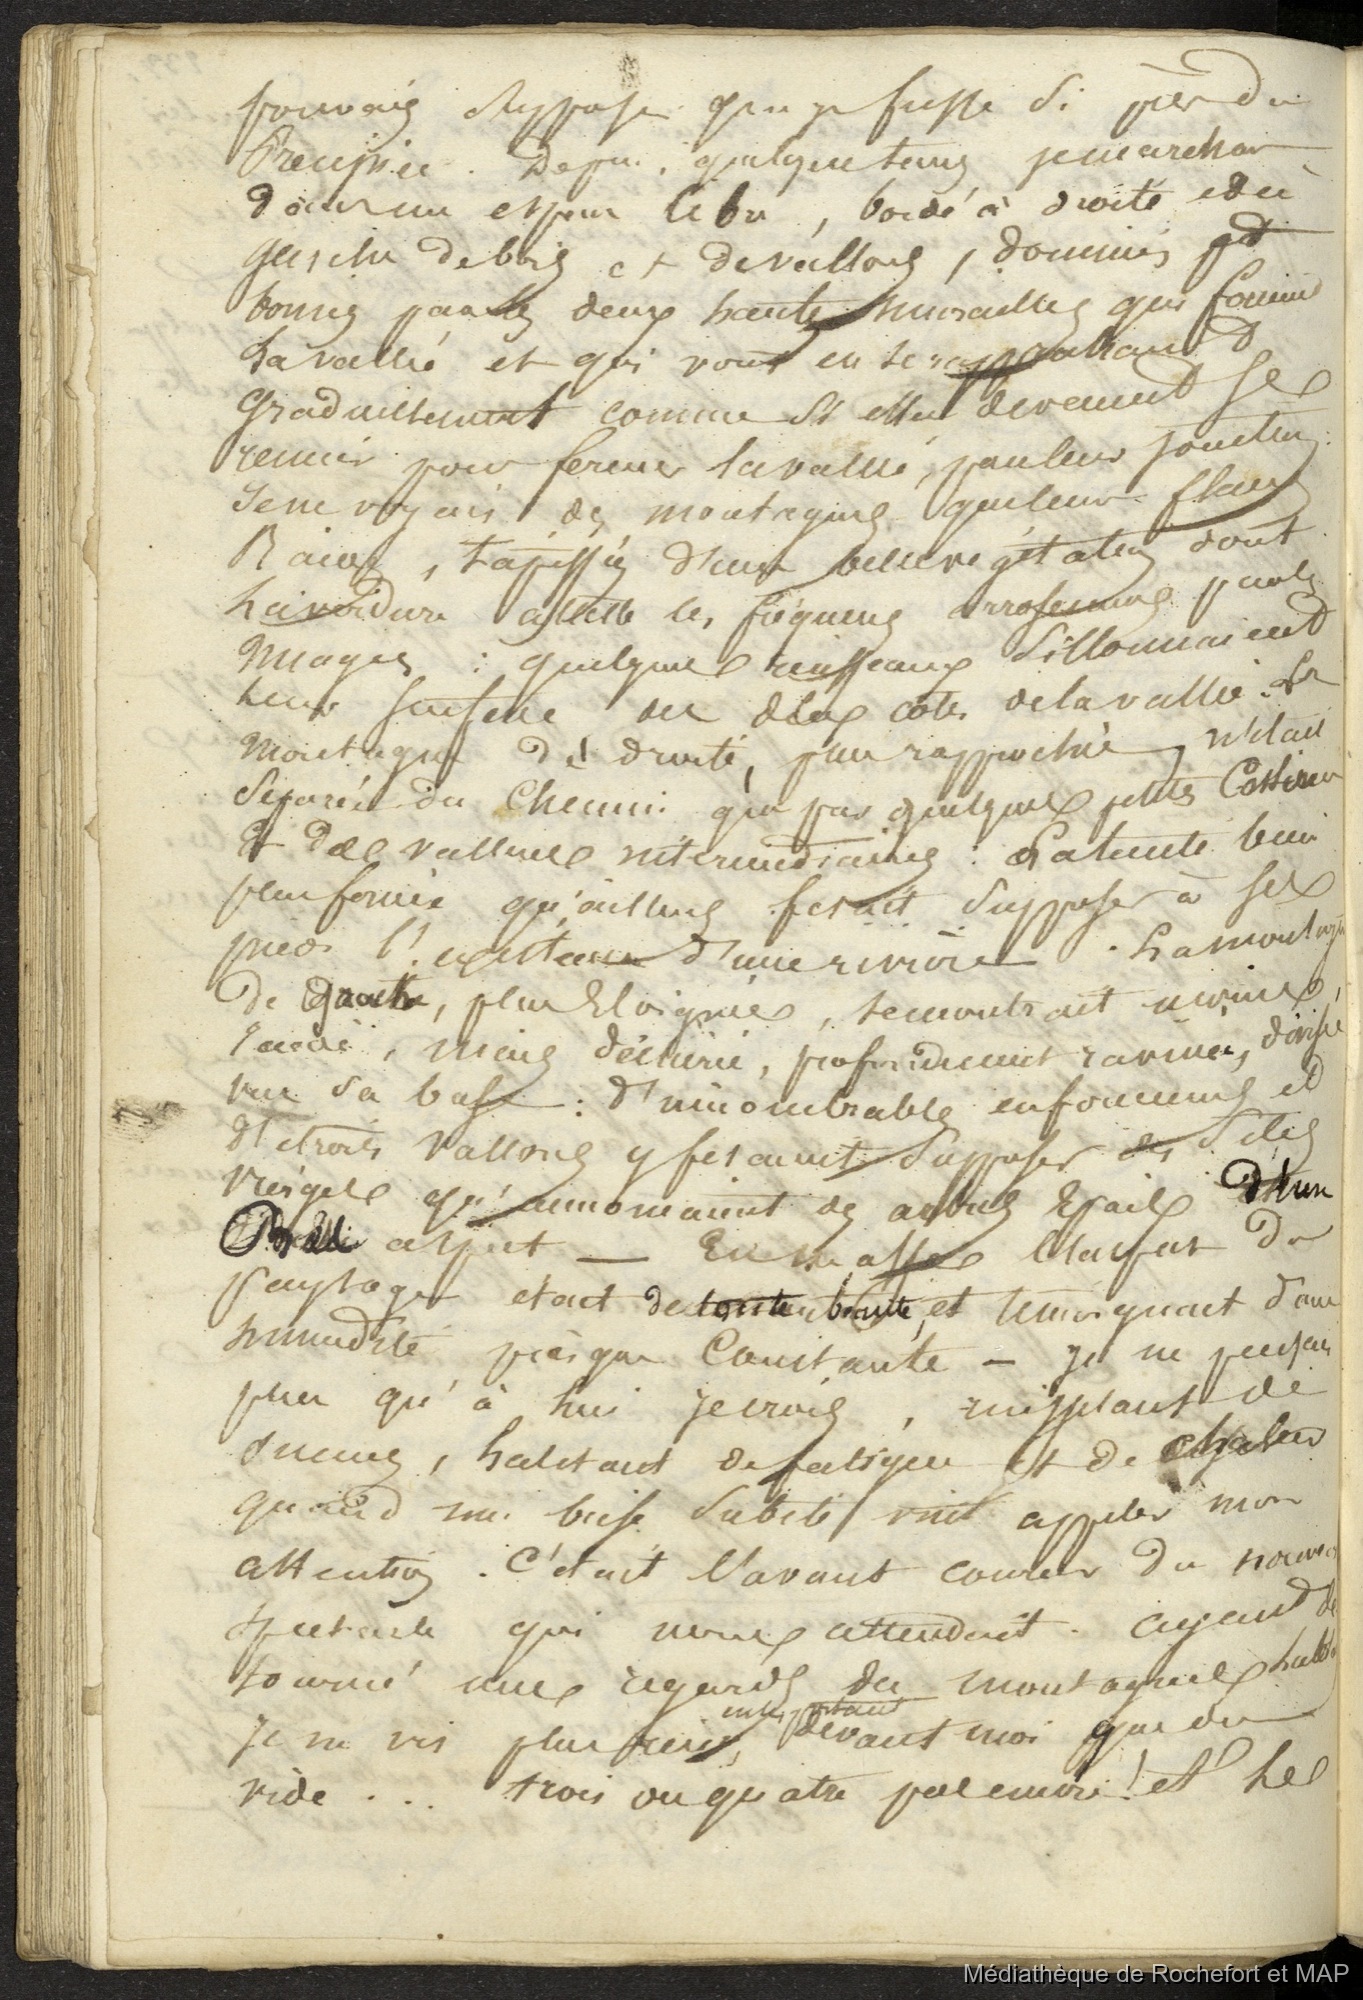 pouvais supposer que je fusse si près du
Précipice. Depuis quelque tems je marchais
dans un espace libre, bordé à droite et à
gauche de bois et de vallons, dominés et
bornés par les deux hautes murailles qui forment
la vallée et qui vont en se rapprochant
graduellement comme si elles devenaient se
reunir pour fermer la vallée, par leur jonction.
Je ne voyais des montagnes que leurs flancs
Raides, tapissés d'une belle végétation dont
la verdure atteste les fréquens arrosemens par les
nuages : quelques ruisseaux sillonnaient
leur surface des deux cotés de la vallée. La
montagne de droite, plus rapprochée, n'était
séparée du chemin que par quelques petites Collines
et des vallons intermédiaires : la
plus qu'ailleurs fesait supposer à ses
pieds l'existence d'une rivière. La montagne
de gauche, plus Eloignée, se montrait moins
raide, moins profondement ravinée, divisée
vers sa base : d'innombrables enfoncemens et
d'etroits vallons y fesaient supposer des sites
vierges qu'annonçaient des arbres Epais d'un
Bel aspect — En masse l'aspect du
paysage etait de toute beauté, et témoignait d'une
humidité presque Constante — je ne pensais
plus qu'à lui je crois, ruisselant de
sueurs, haletant de fatigue et de chaleur
quand une brise subite vint appeler mon
attention. C'était l'avant coureur du nouveau
spectacle qui nous attendait. ayant dé
tourné mes regards des montagnes
je ne vis plus rien, devant moi que du
vide ... trois ou quatre pas encore! et les